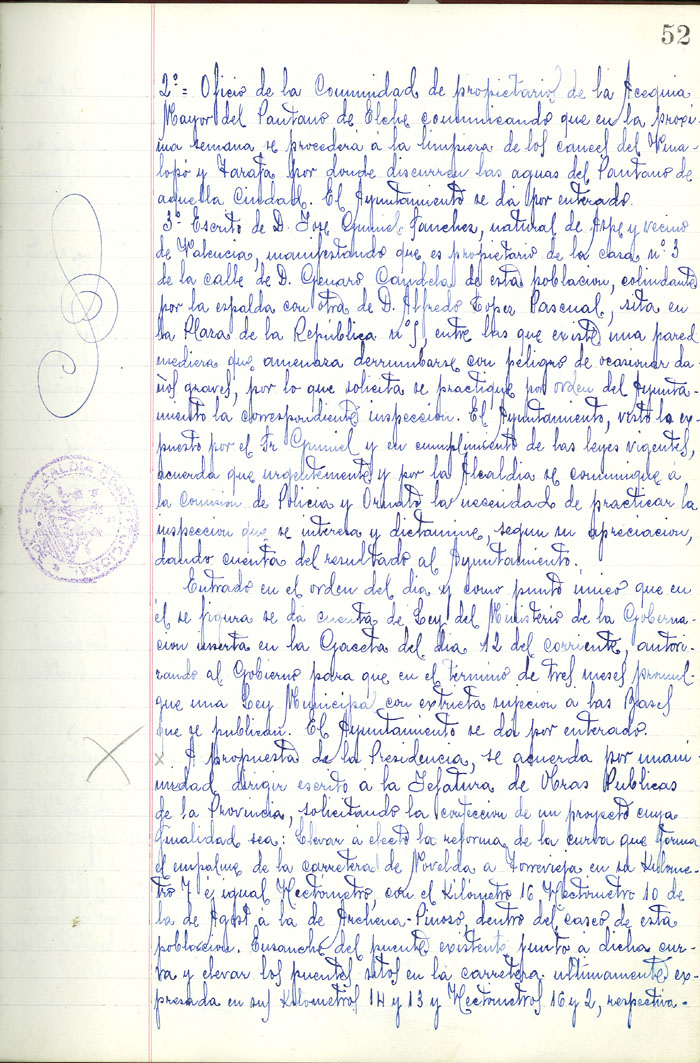 52
2º = Oficio de la Comunidad de propietarios de la Acequia
Mayor del Pantano de Elche comunicando que en la proxi-
ma semana se procederá a la limpieza de los cauces del Vina-
lopó y Tarafa por donde discurren las aguas del Pantano de
aquella Ciudad. El Ayuntamiento se da por enterado.
3º Escrito de D. Jose Sanchez, natural de Aspe y vecino
de Valencia, manifestando que es propietario de la casa nº 3
de la calle de D. Genaro Candela de esta poblacion, colindante
por la espalda con otra de D. Alfredo Lopez Pascual, sita en
la Plaza de la República nº 5, entre las que existe una pared
mediera que amenaza derrumbarse con peligro de ocasionar da-
ños graves, por lo que solicita se practique por orden del Ayunta-
miento la correspondiente inspeccion. El Ayuntamiento, visto lo ex-
puesto por el Sr. y en cumplimiento de las leyes vigentes,
acuerda que urgentemente y por la Alcaldia se comunique á
la Comision de Policia y Ornato la necesidad de practicar la
inspeccion que se interesa y dictamine, segun su apreciacion,
dando cuenta del resultado al Ayuntamiento.
Entrado en el orden del dia y como punto único que en
él se figura se da cuenta de Ley del Ministerio de la Goberna-
cion inserta en la Gaceta del dia 12 del corriente, autori-
zando al Gobierno para que en el término de tres meses promul-
gue una Ley Municipal con extricta sujecion a las Bases
que se publican. El Ayuntamiento se da por enterado.
A propuesta de la Presidencia, se acuerda por unani-
midad dirigir escrito á la Jefatura de Obras Publicas
de la Provincia, solicitando la confeccion de un proyecto cuya
finalidad sea: Elevar á efecto la reforma de la curva que forma
el empalme de la carretera de Novelda a Torrevieja en su Kilome-
tro 7 é igual Hectometro, con el Kilómetro 16 Hectometro 10 de
la de Agost á la de Archena-Pinoso, dentro del casco de esta
poblacion. Ensanche del puente existente junto a dicha cur-
va y elevar los puentes sitos en la carretera ultimamente ex-
presada en sus Kilometros 14 y 13 y Hectometros 16 y 2, respectiva-